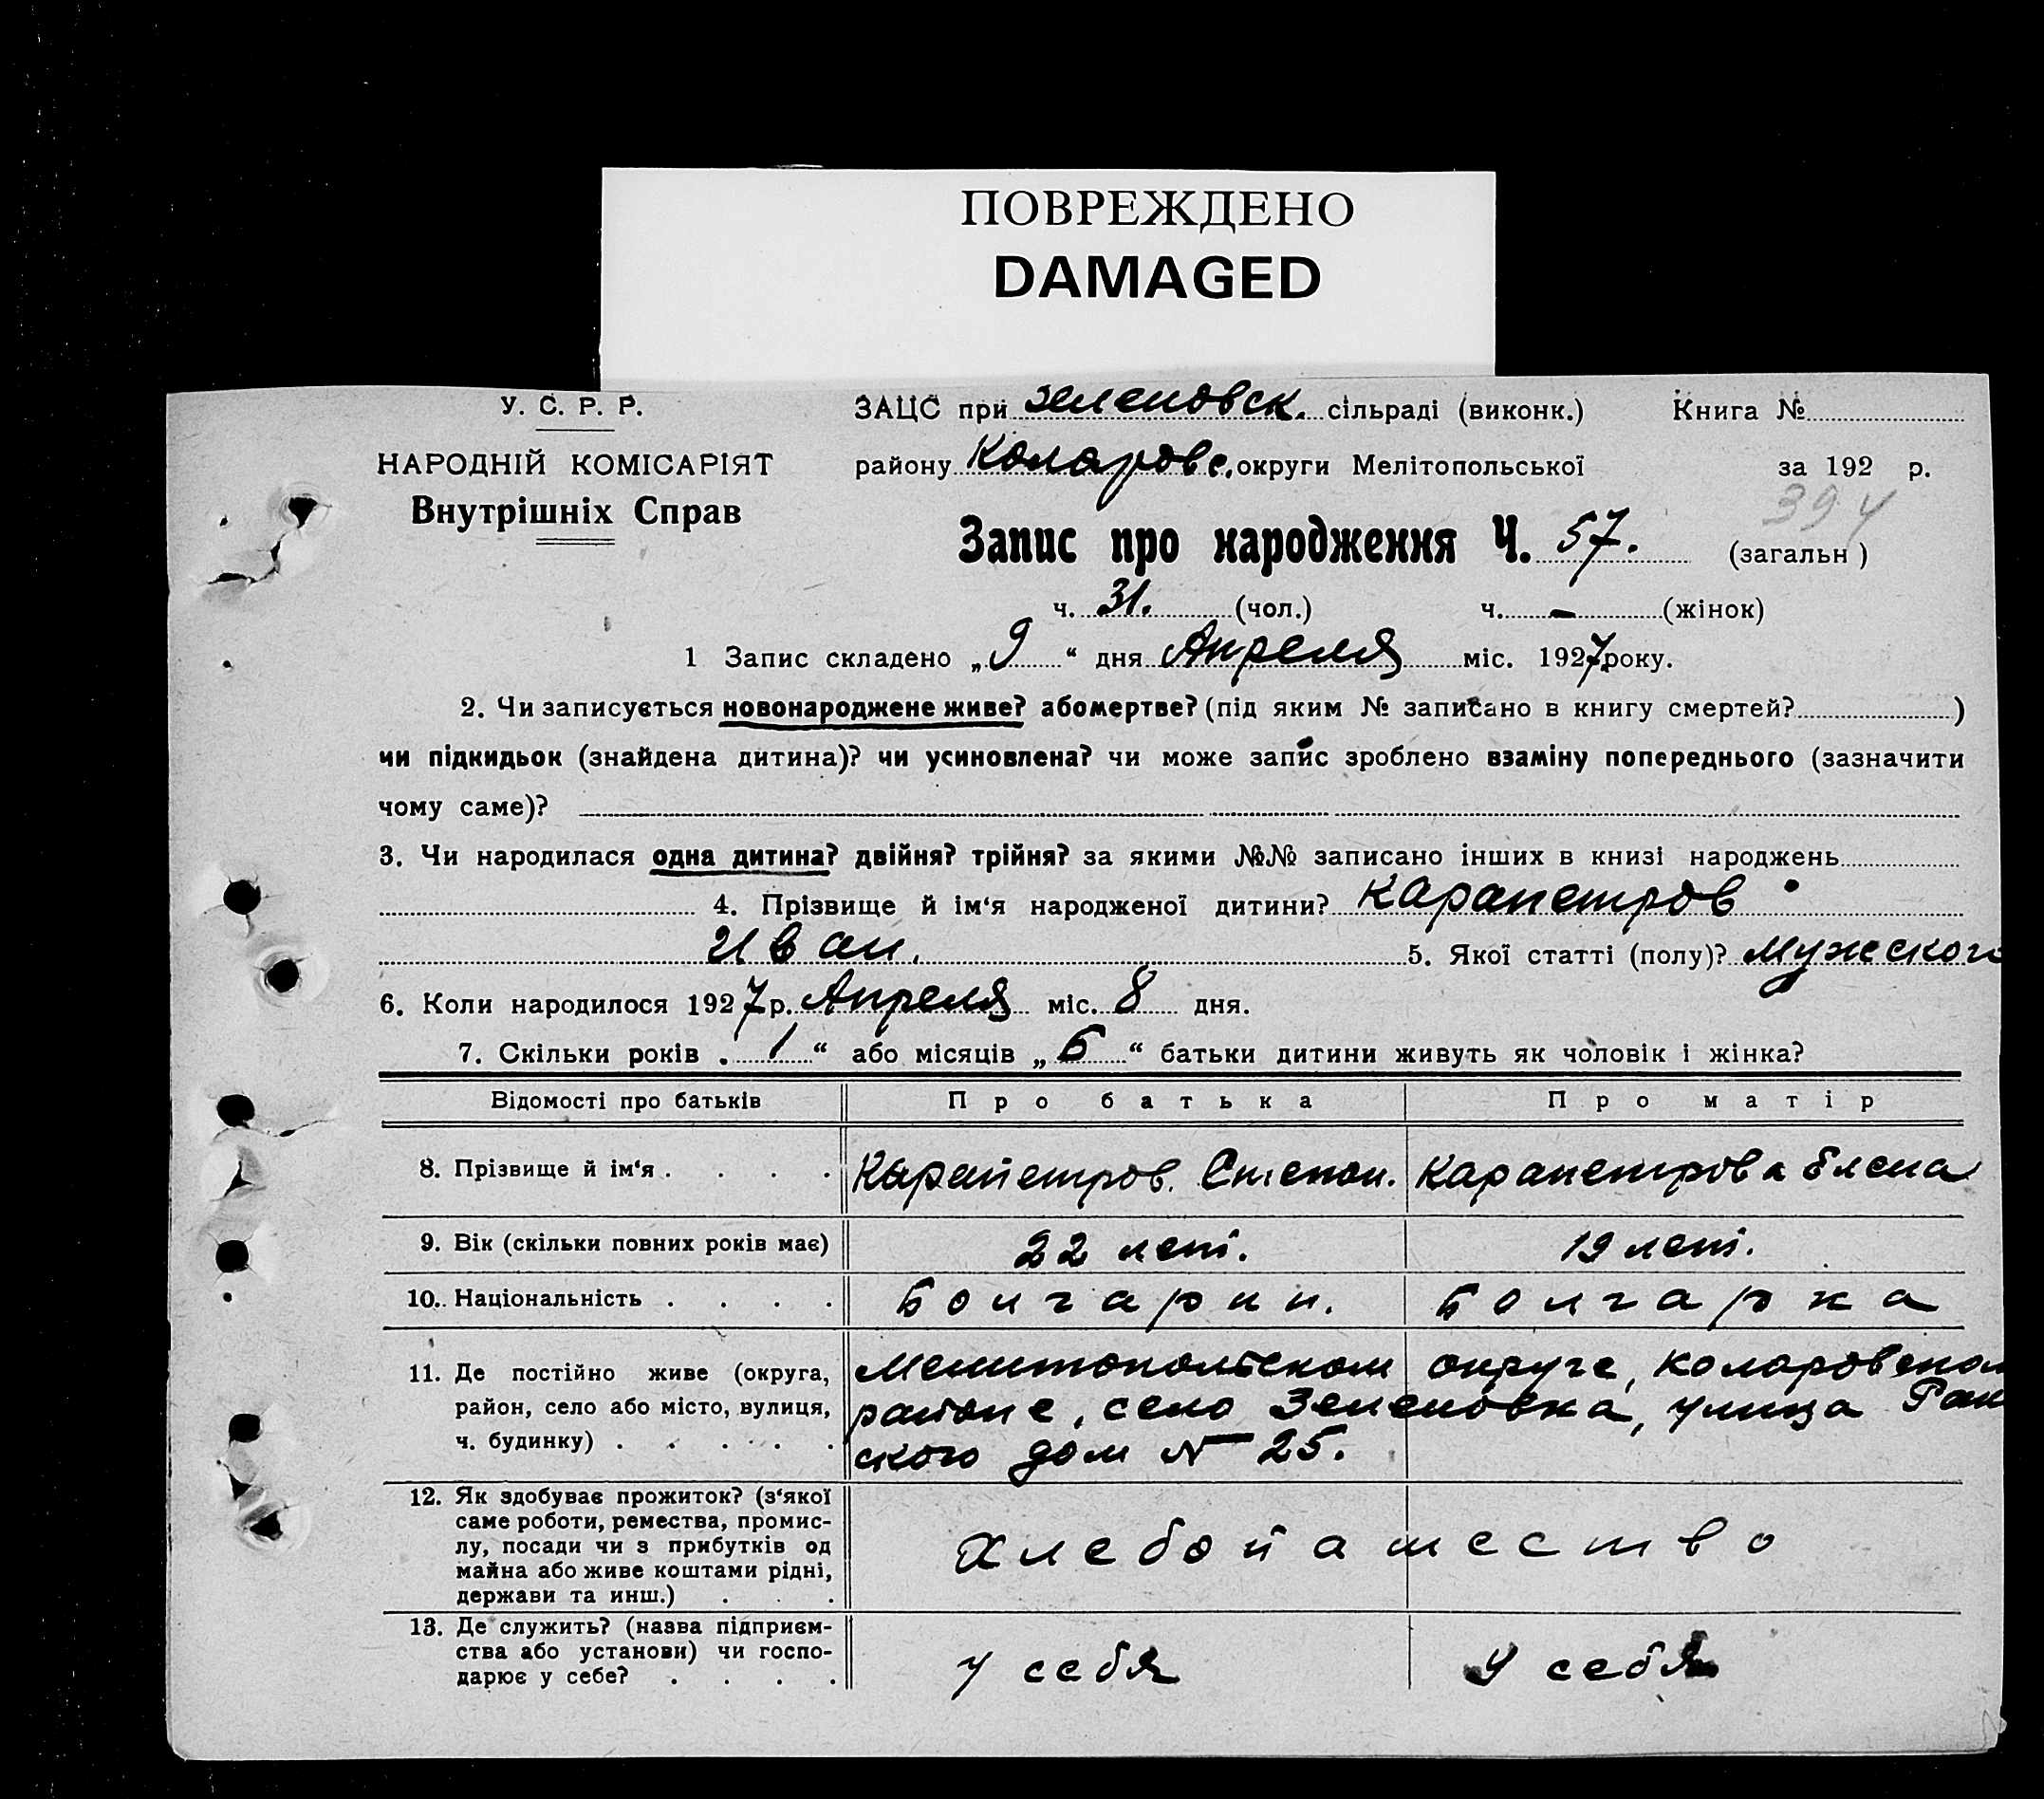 ПОВРЕЖДЕНО
DAMAGED
У. С. Р. Р.
НАРОДНІЙ КОМІСАРІЯТ
Внутрішніх Справ
ЗАЦС при Зеленовск. сільраді (виконк.) Книга №
району Коларовс. округи Мелітопольської за 192 р.
394
Запис про народження Ч. 57. (загальн)
ч. 31. (чол.) ч. – (жінок)
1 Запис складено „9“ дня Апреля міс. 1927 року.
2. Чи записується новонароджене живе? або мертве? (під яким № записано в книгу смертей? )
чи підкидьок (знайдена дитина)? чи усиновлена? чи може запис зроблено взаміну попереднього (зазначити
чому саме)?
3. Чи народилася одна дитина? двійня? трійня? за якими №№ записано інших в книзі народжень
4. Прізвище й ім‘я народженої дитини? Карапетров
Иван. 5. Якої статті (полу)? Мужского
6. Коли народилося 1927 р. Апреля міс. 8 дня.
7. Скільки років „1“ або місяців „6“ батьки дитини живуть як чоловік і жінка?
Відомості про батьків Про батька Про матір
8. Прізвище й ім‘я . . . . Карапетров. Степан. Карапетрова Елена
9. Вік (скільки повних років має) 22 лет. 19 лет.
10. Національність . . . . Болгарин. Болгарка
11. Де постійно живе (округа,
район, село або місто, вулиця,
ч. будинку) . . . . .
Мелитопольском округе, Коларовском
районе, село Зеленовка, улица
ского дом № 25.
12. Як здобуває прожиток? (з‘якої
саме роботи, ремества, промис-
лу, посади чи з прибутків од
майна або живе коштами рідні,
держави та инш.) . . .
Хлебопашество
13. Де служить? (назва підприєм-
ства або установи) чи госпо-
дарює у себе? . . . .
у себя у себя